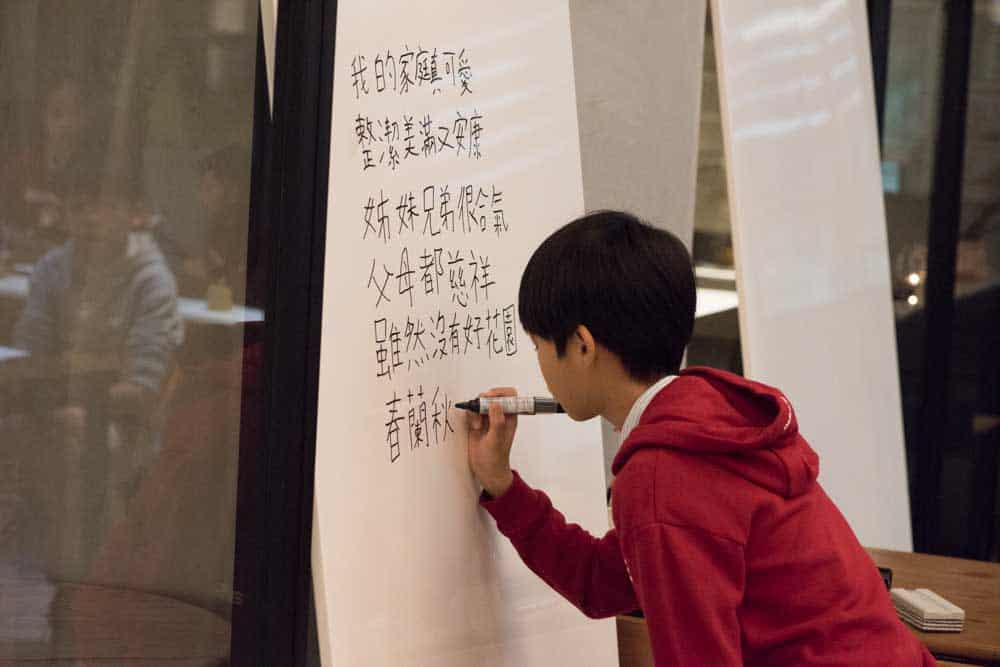 我的家庭真可愛
整潔美滿又安康
姊妹兄弟很合氣
父母都慈祥
雖然沒有好花園
春蘭秋